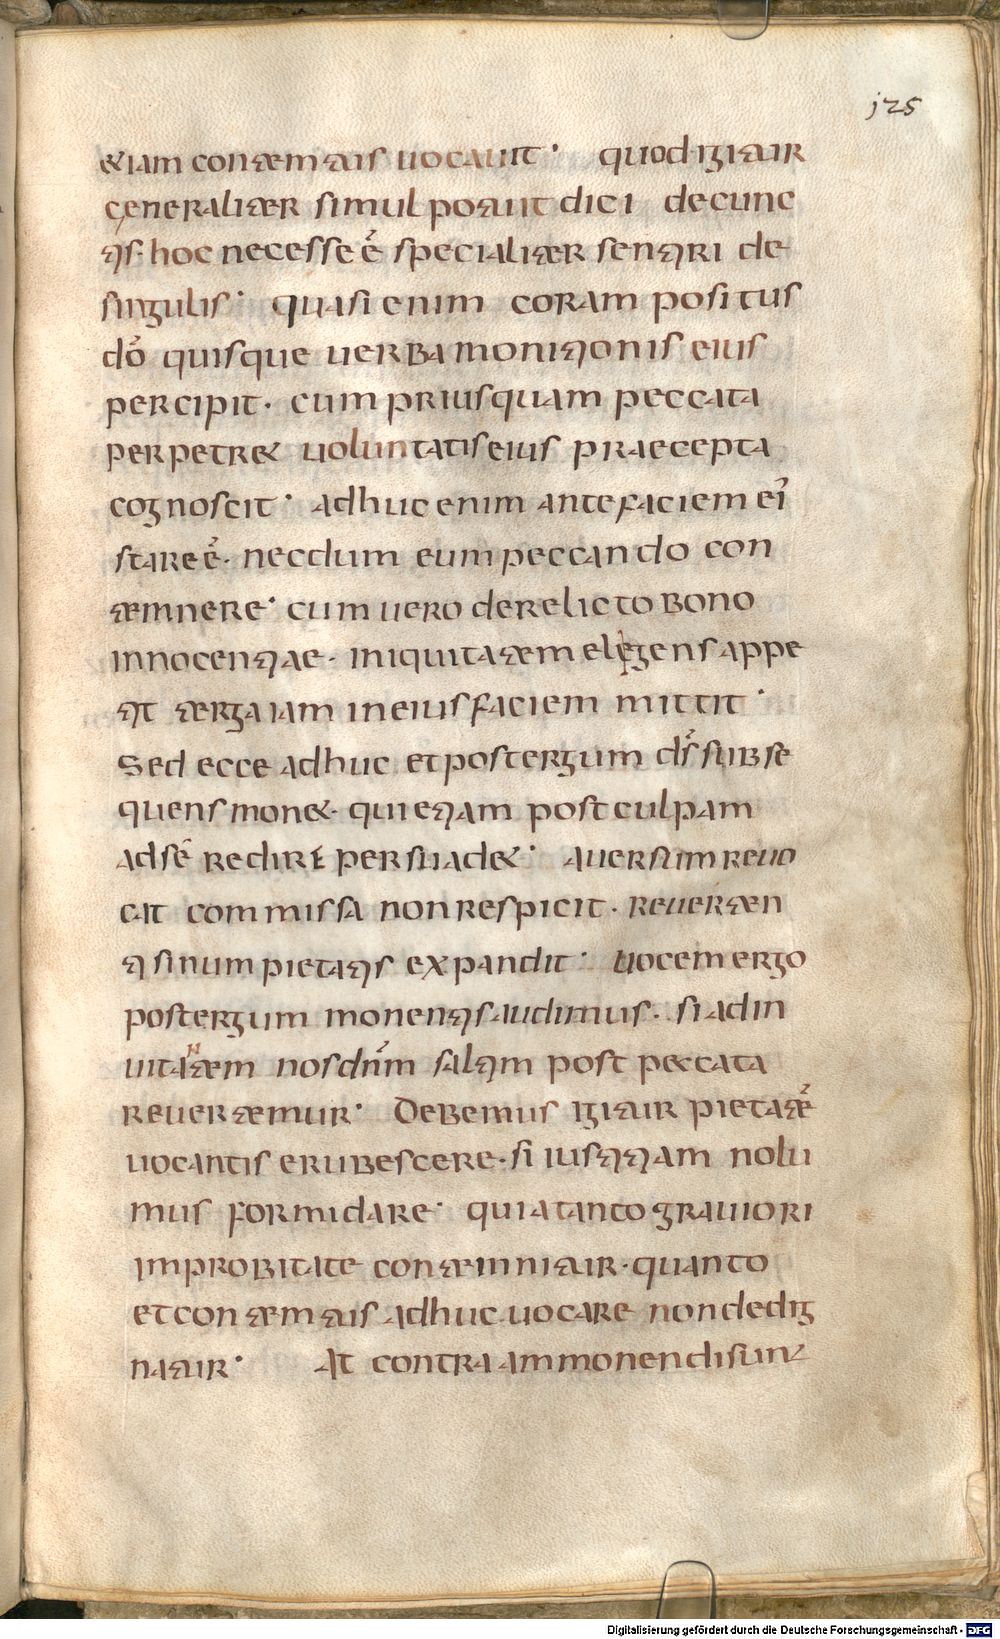 125
&iam contemtus uocauit· quod igitur
generaliter simul potuit dici de cunc
tis· hoc necesse ē specialiter sentiri de
singulis· quasi enim coram positus
dō quisque uerba monitionis eius
percipit· cum priusquam peccata
perpetr& uoluntatis eius praecepta
cognoscit· adhuc enim ante faciem ei
stare ē· necdum eum peccando con
temnere· cum uero derelicto bono
innocentiae· iniquitatem elegens appe
tit terga iam in eius faciem mittit·
Sed ecce adhuc et post ergum ds subse
quens mon&· qui etiam post culpam
ad sē redire persuad&· auersum reuo
cat commissa non respicit· reuerten
ti sinum pietatis expandit· uocem ergo
post ergum monentis audimus· si ad in
uitantem nos dnm saltim post peccata
reuertemur· Debemus igitur pietatē
uocantis erubescere· si iustitiam nolu
mus formidare· quia tanto grauiori
improbitate contemnitur· quanto
et contemtus adhuc uocare non dedig
natur· At contra ammonendi sunt
Digitalisierung gefördert durch die Deutsche Forschungsgemeinschaft - DFG